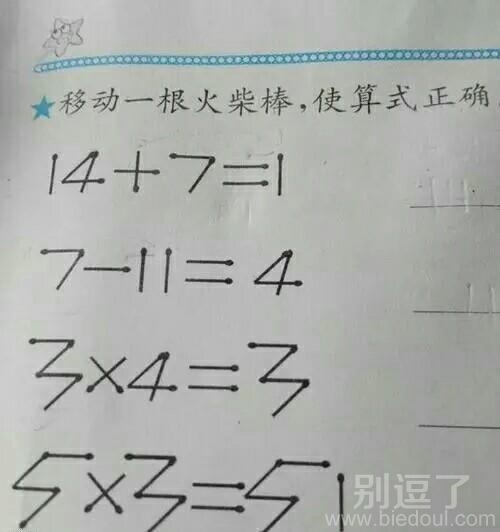 ★移动一根火柴棒,使算式正确
14+7=1
7-11=4
3×4=3
5×3=51
别逗了
www.biedoul.com